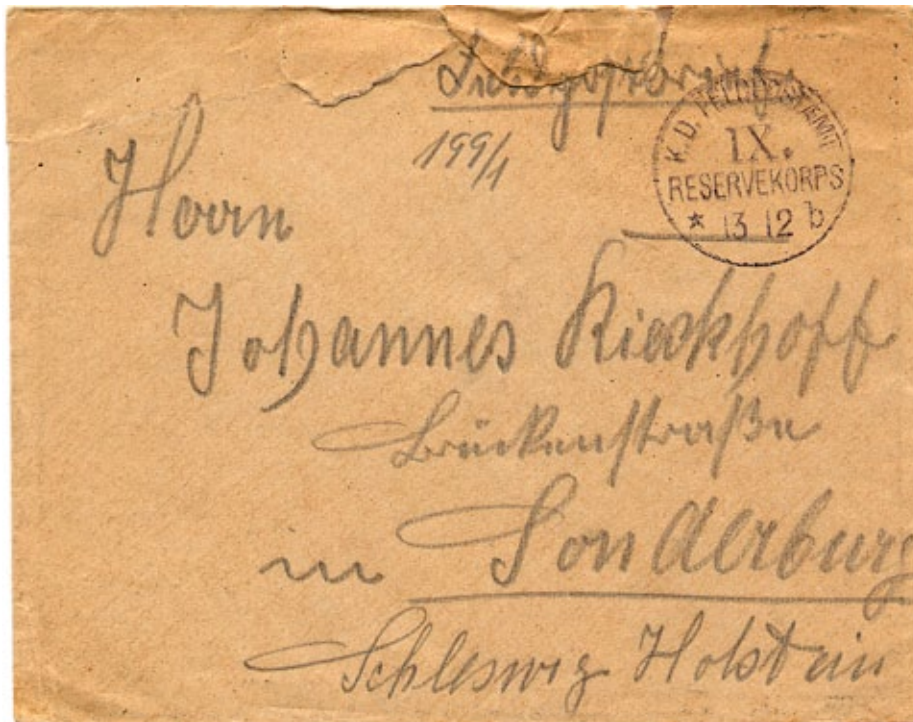 Feldpostbrief.
199/1
K.D. FELDPOSTAMT
IX.
RESERVEKORPS
* 13 12 b
Herrn
Johannes
Brückenstraße
in Sonderburg
Schleswig Holstein